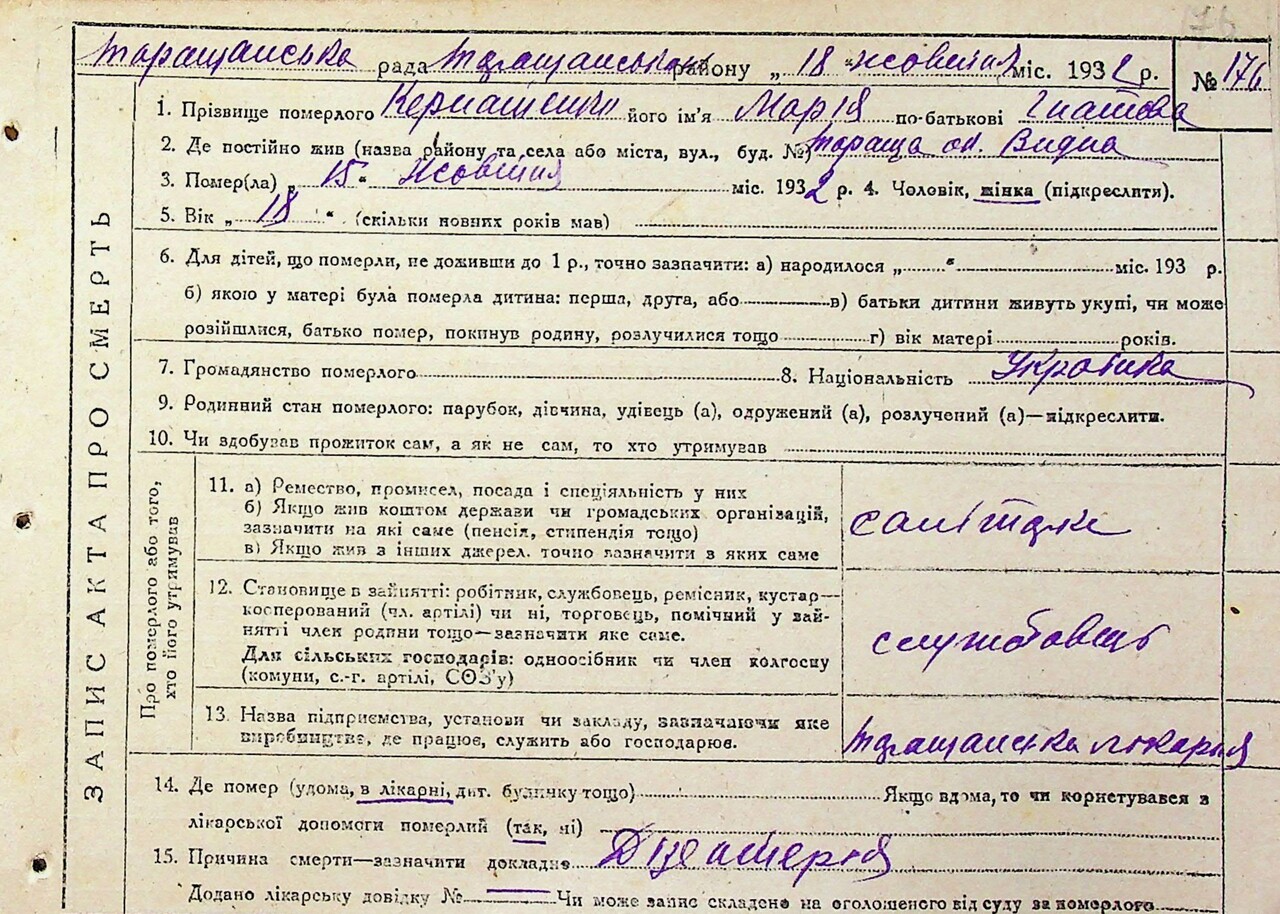 176
Таращанська рада Таращанського району „ 18 " жовтня міс. 1932 р. № 176
1. Прізвище померлого його ім'я Марія по-батькові Гнатова
2. Де постійно жив (назва району та села або міста, вул., буд. №) Тараща ол. Видна
3. Помер(ла) „ 15 " Жовтня міс. 1932 р. 4. Чоловік, жінка (підкреслити).
5. Вік „ 18 " (скільки новних років мав)
6. Для дітей, що померли, не доживши до 1 р., точно зазначити: а) народилося „ " міс. 193 р.
б) якою у матері була померла дитина: перша, друга, або в) батьки дитини живуть укупі, чи може
розійшлися, батько помер, покинув родину, розлучилися тощо г) вік матері років.
7. Громадянство померлого 8. Національність Українка
9. Родинний стан померлого: парубок, дівчина, удівець (а), одружений (а), розлучений (а)—підкреслити.
10. Чи здобував прожиток сам, а як не сам, то хто утримував
ЗАПИС АКТА ПРО СМЕРТЬ
Про померлого або того,
хто його утримував
11. а) Ремество, промисел, посада і спеціяльність у них
б) Якщо жив коштом держави чи громадських організацій,
зазначити на які саме (пенсія, стипендія тощо)
в) Якщо жив з інших джерел. точно зазначити з яких саме
санітарка
12. Становище в зайнятті: робітник, службовець, ремісник, кустар—
коcперований (чл. артілі) чи ні, торговець, помічний у зай-
нятті член родини тощо—зазначити яке саме.
Для сільських господарів: одноосібник чи член колгоспу
(комуни, с.-г. артілі, СОЗ'у)
службовець
13. Назва підприємства, установи чи закладу, зазначаючи яке
виробництво, де працює, служить або господарює.
Таращанська лікарня
14. Де помер (удома, в лікарні, дит. будинку тощо) Якщо вдома, то чи користувався з
лікарської допомоги померлий (так, ні)
15. Причина смерти—зазначити докладно Дизентерія
Додано лікарську довідку № Чи може запис складено на оголошеного від суду за померлого